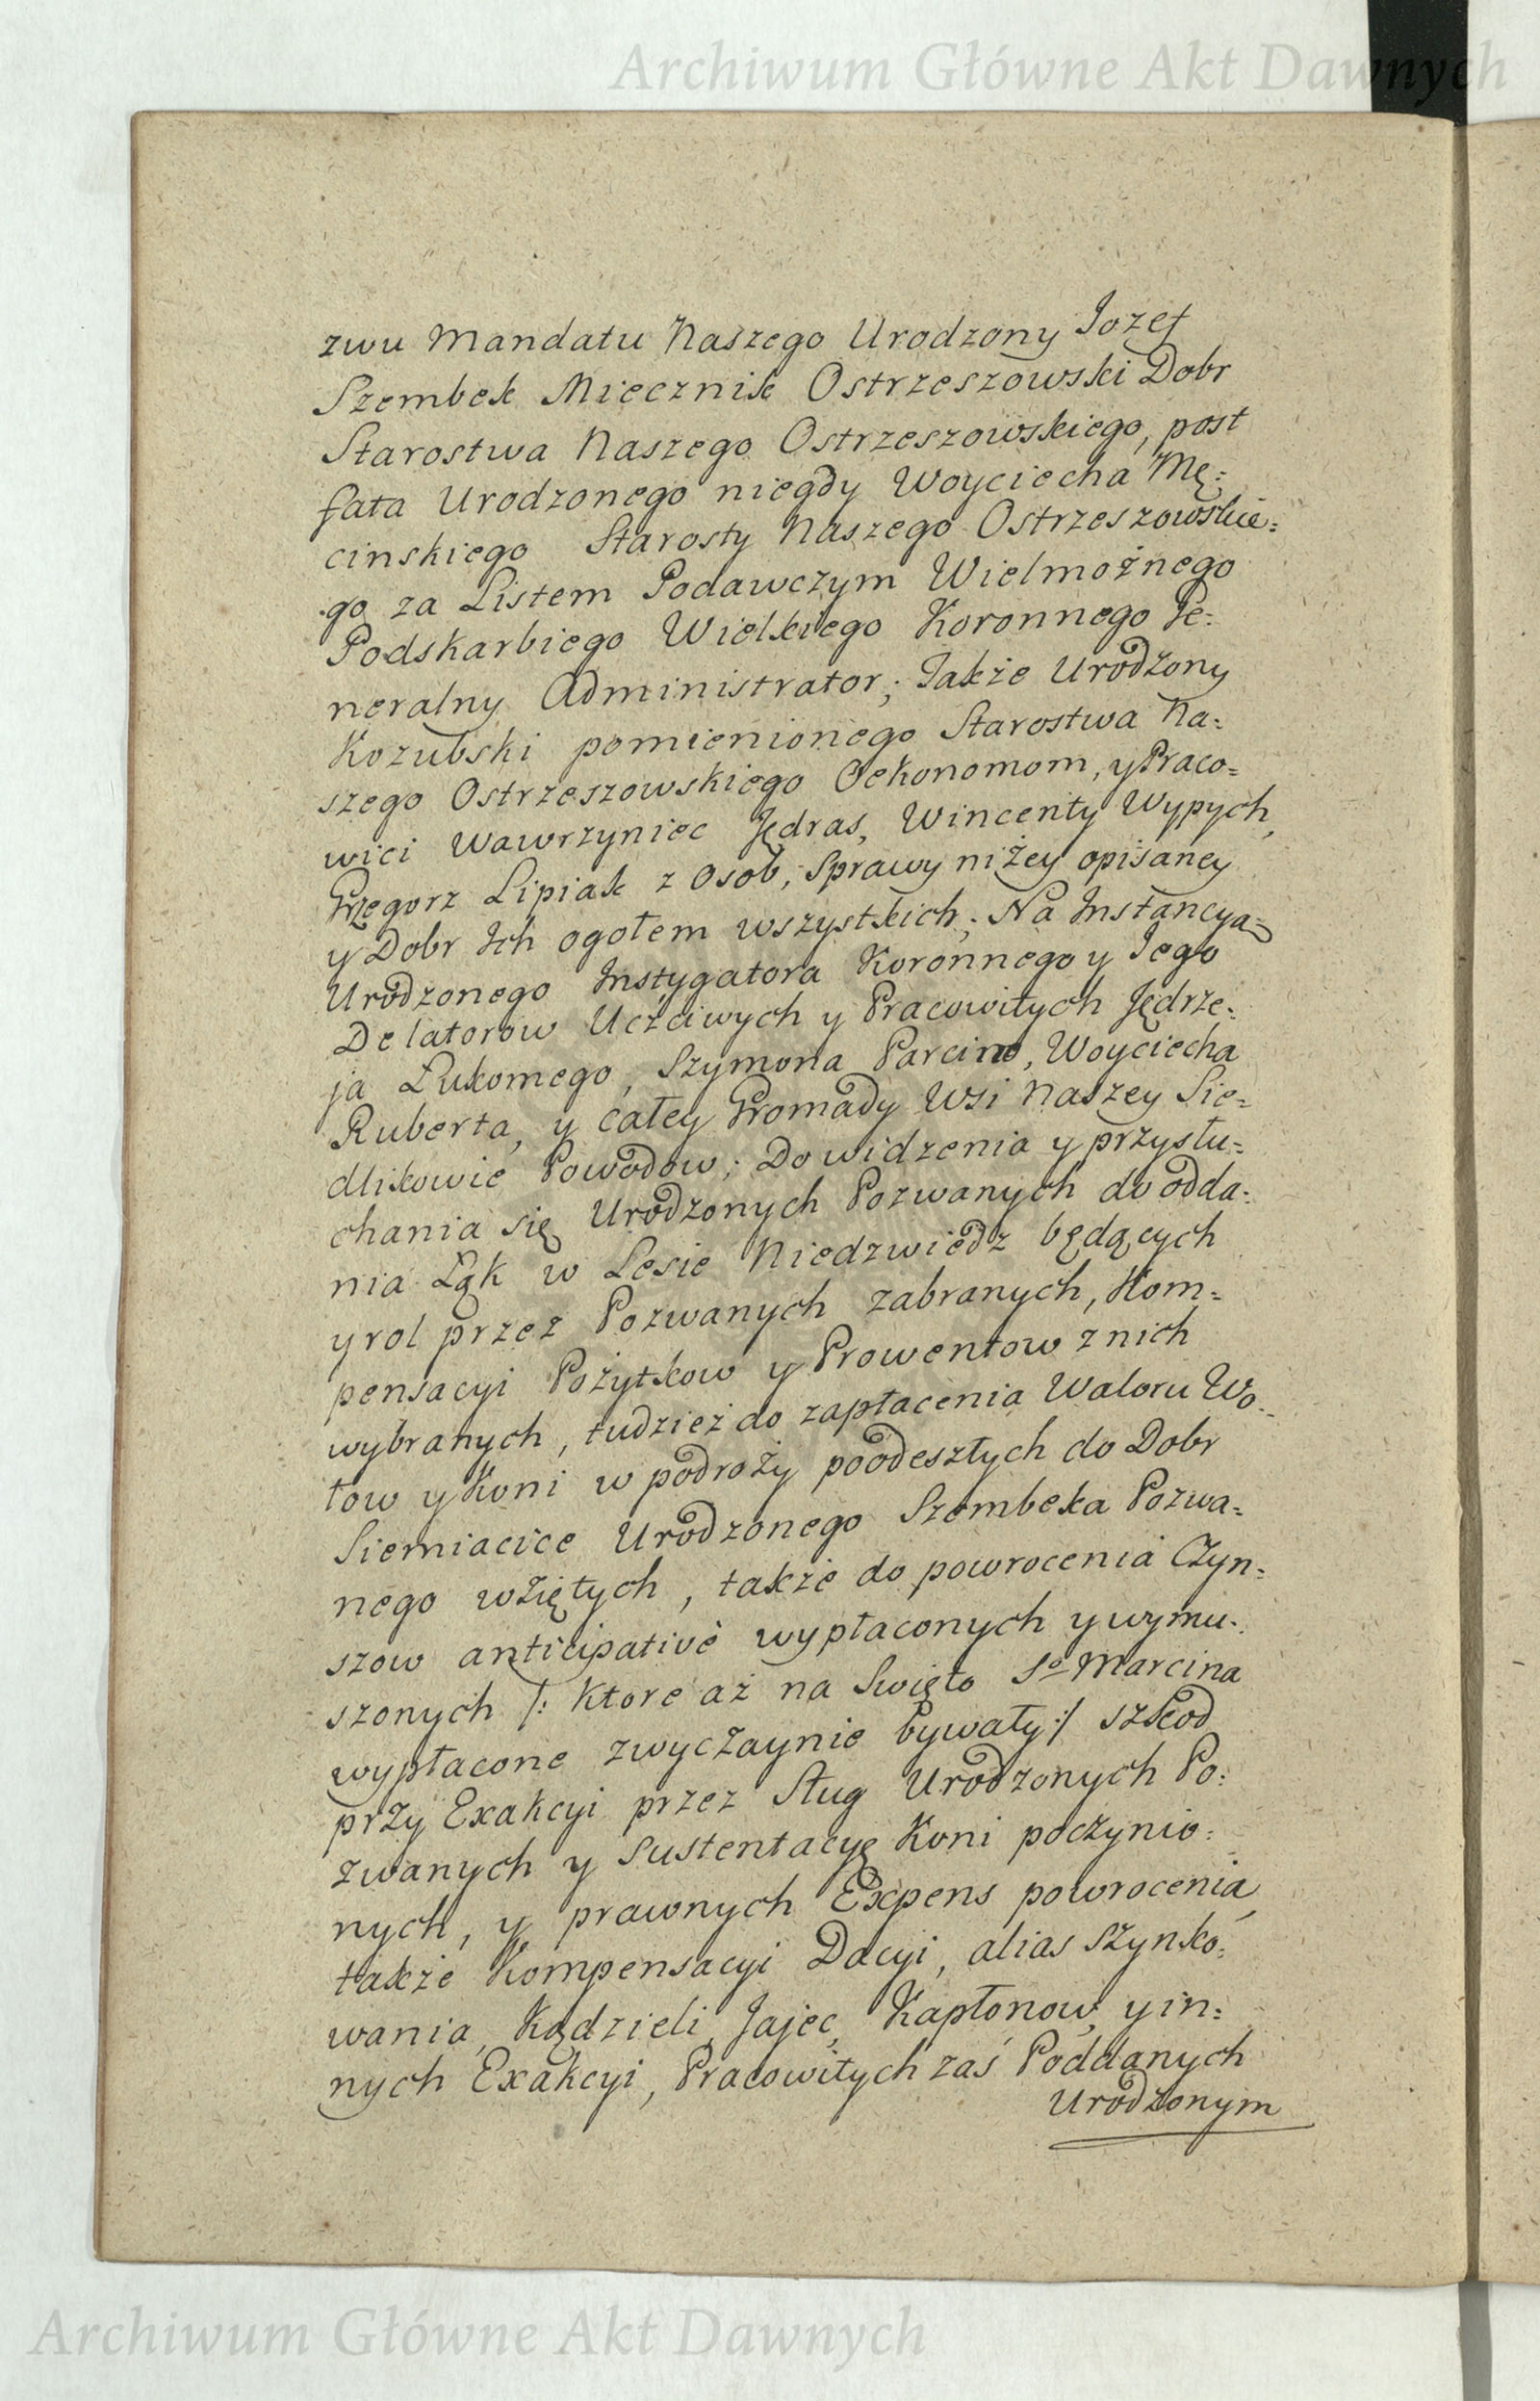 Archiwum Główne Akt Dawnych
zwu Mandatu Naszego Urodzony Jozef
Szembek Miecznik Ostrzeszowski Dobr
Starostwa Naszego Ostrzeszowskiego, post
fata Urodzonego niegdy Woyciecha Mę:
cinskiego Starosty Naszego Ostrzeszowskie:
go za Listem Podawczym Wielmożnego
Podskarbiego Wielkiego Koronnego Je:
neralny Administrator; Jakże Urodzony
Kozubski pomienionego Starostwa Na:
szego Ostrzeszowskiego Oekonomom, y Praco=
wici Wawrzyniec Jędras, Wincenty Wypych,
Grzegorz Lipiak z Osob, Sprawy niżey opisaney
y Dobr Ich ogołem wszystkich; Na Instancya=
Urodzonego Instygatora Koronnego y Jego
Delatorow Uczciwych y Pracowitych Jędrze:
ja Łukomego, Szymona Parcino, Woyciecha
Ruberta, y całey Gromady Wsi Naszey Sie=
dlikowie Powodow; Do widzenia y przysłu=
chania się Urodzonych Pozwanych do odda:
nia Łąk w Lesie Niedzwiedz będących
y rol przez Pozwanych zabranych, Kom=
pensacyi Pożytkow y Prowentow z nich
wybranych, tudzież do zapłacenia Waloru Wo:
łow y Koni w podroży poodeszłych do Dobr
Siemiacice Urodzonego Szembeka Pozwa=
nego wziętych, także do powrocenia Czyn:
szow anticipativè wypłaconych y wymu:
szonych /: Ktore aż na Swięto Sº Marcina
wypłacone zwyczaynie bywały :/ szkod
przy Exakcyi przez Sług Urodzonych Po:
zwanych y Sustentacyę Koni poczynio:
nych, y prawnych Expens powrocenia,
także Kompensacyi Dacyi, alias szynko:
wania, Kądzieli, Jajec, Kapłonow, y in:
nych Exakcyi, Pracowitych zaś Poddanych
Urodzonym
Archiwum Główne Akt Dawnych